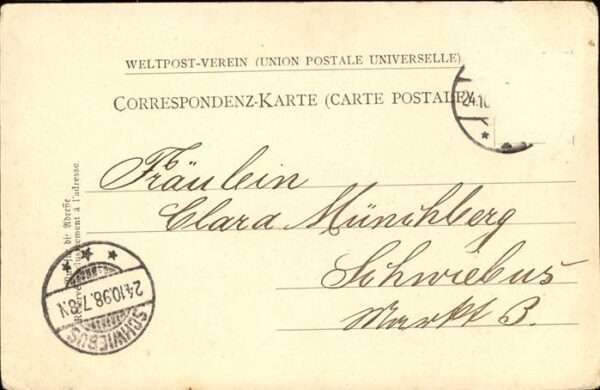 WELTPOST-VEREIN (UNION POSTALE UNIVERSELLE)
CORRESPONDENZ-KARTE (CARTE POSTALE)
24.10
Fräulein
Clara Münchberg
Schwiebus
Markt 3.
die Adresse
à l'adresse
SCHWIEBUS
24.10.98.7-8.N.